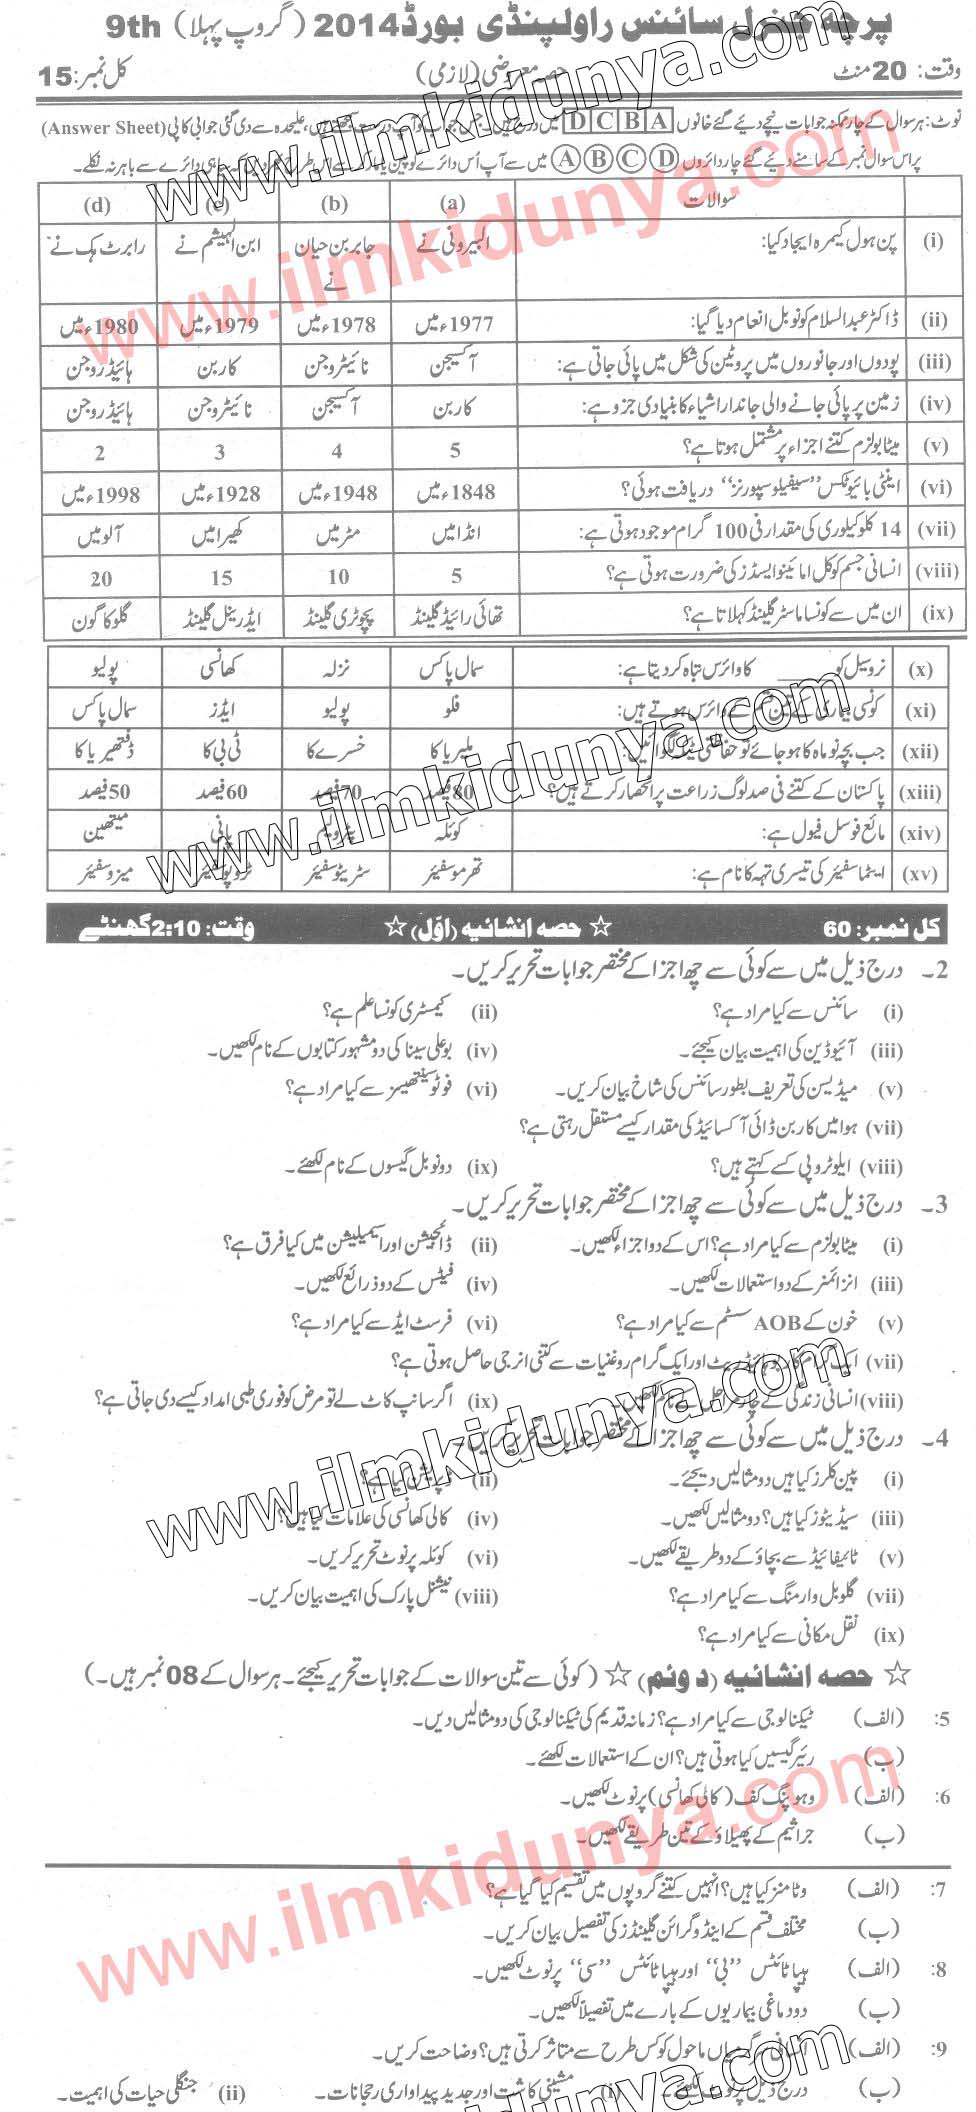 پرچہ جنرل سائنس راولپنڈی بورڈ 2014 (گروپ پہلا) 9th
وقت: 20 منٹ حصہ معروضی (لازمی) کل نمبر: 15
نوٹ: ہر سوال کے چار ممکنہ جوابات نیچے دیئے گئے خانوں D C B A میں درج ہیں۔ جس جواب کو آپ درست سمجھیں، علیحدہ سے دی گئی جوابی کاپی (Answer Sheet)
پر اس سوال نمبر کے سامنے دیئے گئے چار دائروں A B C D میں سے آپ اُس دائرے کو پین یا مارکر سے اس طرح بھر دیں کہ سیاہی دائرے سے باہر نہ نکلے۔
سوالات (a) (b) (c) (d)
(i) پن ہول کیمرہ ایجاد کیا: البیرونی نے جابر بن حیان نے ابن الہیشم نے رابرٹ ہک نے
(ii) ڈاکٹر عبدالسلام کو نوبل انعام دیا گیا: 1977ء میں 1978ء میں 1979ء میں 1980ء میں
(iii) پودوں اور جانوروں میں پروٹین کی شکل میں پائی جاتی ہے: آکسیجن نائیٹروجن کاربن ہائیڈروجن
(iv) زمین پر پائی جانے والی جاندار اشیاء کا بنیادی جزو ہے: کاربن آکسیجن نائیٹروجن ہائیڈروجن
(v) میٹابولزم کتنے اجزاء پر مشتمل ہوتا ہے؟ 5 4 3 2
(vi) اینٹی بائیوٹکس "سیفیلوسپورنز" دریافت ہوئی؟ 1848ء میں 1948ء میں 1928ء میں 1998ء میں
(vii) 14 کلو کیلوری کی مقدار فی 100 گرام موجود ہوتی ہے: انڈا میں مٹر میں کھیرا میں آلو میں
(viii) انسانی جسم کو کل امائینو ایسڈز کی ضرورت ہوتی ہے؟ 5 10 15 20
(ix) ان میں سے کونسا ماسٹر گلینڈ کہلاتا ہے؟ تھائی رائیڈ گلینڈ پچوٹری گلینڈ ایڈرینل گلینڈ گلوکاگون
(x) نرو سیل کو ______ کا وائرس تباہ کر دیتا ہے: سمال پاکس نزلہ کھانسی پولیو
(xi) کونسی بیماری کے تین قسم کے وائرس ہوتے ہیں: فلو پولیو ایڈز سمال پاکس
(xii) جب بچہ نو ماہ کا ہو جائے تو حفاظتی ٹیکہ لگوائیں: ملیریا کا خسرے کا ٹی بی کا ڈفتھیریا کا
(xiii) پاکستان کے کتنے فی صد لوگ زراعت پر انحصار کرتے ہیں؟ 80 فیصد 70 فیصد 60 فیصد 50 فیصد
(xiv) مائع فوسل فیول ہے: کوئلہ پٹرولیم پانی میتھین
(xv) ایٹماسفیئر کی تیسری تہہ کا نام ہے: تھرموسفیئر سٹریٹوسفیئر ٹروپوسفیئر میزوسفیئر
کل نمبر: 60 ☆ حصہ انشائیہ (اوّل) ☆ وقت: 2:10 گھنٹے
2۔ درج ذیل میں سے کوئی سے چھ اجزا کے مختصر جوابات تحریر کریں۔
(i) سائنس سے کیا مراد ہے؟ (ii) کیمسٹری کونسا علم ہے؟
(iii) آئیوڈین کی اہمیت بیان کیجئے۔ (iv) بو علی سینا کی دو مشہور کتابوں کے نام لکھیں۔
(v) میڈیسن کی تعریف بطور سائنس کی شاخ بیان کریں۔ (vi) فوٹو سینتھیسز سے کیا مراد ہے؟
(vii) ہوا میں کاربن ڈائی آکسائیڈ کی مقدار کیسے مستقل رہتی ہے؟
(viii) ایلوٹروپی کسے کہتے ہیں؟ (ix) دو نوبل گیسوں کے نام لکھئے۔
3۔ درج ذیل میں سے کوئی سے چھ اجزا کے مختصر جوابات تحریر کریں۔
(i) میٹابولزم سے کیا مراد ہے؟ اس کے دو اجزاء لکھیں۔ (ii) ڈائجیشن اور اسیمیلیشن میں کیا فرق ہے؟
(iii) انزائمز کے دو استعمالات لکھیں۔ (iv) فیٹس کے دو ذرائع لکھیں۔
(v) خون کے AOB سسٹم سے کیا مراد ہے؟ (vi) فرسٹ ایڈ سے کیا مراد ہے؟
(vii) ایک گرام کاربوہائیڈریٹ اور ایک گرام روغنیات سے کتنی انرجی حاصل ہوتی ہے؟
(viii) انسانی زندگی کے چار مراحل کے نام لکھیں۔ (ix) اگر سانپ کاٹ لے تو مرض کو فوری طبی امداد کیسے دی جاتی ہے؟
4۔ درج ذیل میں سے کوئی سے چھ اجزا کے مختصر جوابات تحریر کریں۔
(i) پین کلرز کیا ہیں دو مثالیں دیجئے۔ (ii) ڈپریشن کیا ہے؟
(iii) سیڈیٹوز کیا ہیں؟ دو مثالیں لکھیں۔ (iv) کالی کھانسی کی علامات کیا ہیں؟
(v) ٹائیفائیڈ سے بچاؤ کے دو طریقے لکھیں۔ (vi) کوئلہ پر نوٹ تحریر کریں۔
(vii) گلوبل وارمنگ سے کیا مراد ہے؟ (viii) نیشنل پارک کی اہمیت بیان کریں۔
(ix) نقل مکانی سے کیا مراد ہے؟
☆ حصہ انشائیہ (دوئم) ☆ (کوئی سے تین سوالات کے جوابات تحریر کیجئے۔ ہر سوال کے 08 نمبر ہیں۔)
5: (الف) ٹیکنالوجی سے کیا مراد ہے؟ زمانہ قدیم کی ٹیکنالوجی کی دو مثالیں دیں۔
(ب) ریئر گیسیں کیا ہوتی ہیں؟ ان کے استعمالات لکھئے۔
6: (الف) وہوپنگ کف (کالی کھانسی) پر نوٹ لکھیں۔
(ب) جراثیم کے پھیلاؤ کے تین طریقے لکھیں۔
7: (الف) وٹامنز کیا ہیں؟ انہیں کتنے گروپوں میں تقسیم کیا گیا ہے؟
(ب) مختلف قسم کے اینڈوگرائن گلینڈز کی تفصیل بیان کریں۔
8: (الف) ہیپاٹائٹس "بی" اور ہیپاٹائٹس "سی" پر نوٹ لکھیں۔
(ب) دو دماغی بیماریوں کے بارے میں تفصیلاً لکھیں۔
9: (الف) انسانی سرگرمیاں ماحول کو کس طرح سے متاثر کرتی ہیں؟ وضاحت کریں۔
(ب) درج ذیل پر نوٹ لکھئے۔ (i) مشینی کاشت اور جدید پیداواری رجحانات۔ (ii) جنگلی حیات کی اہمیت۔
www.ilmkidunya.com
www.ilmkidunya.com
www.ilmkidunya.com
www.ilmkidunya.com
www.ilmkidunya.com